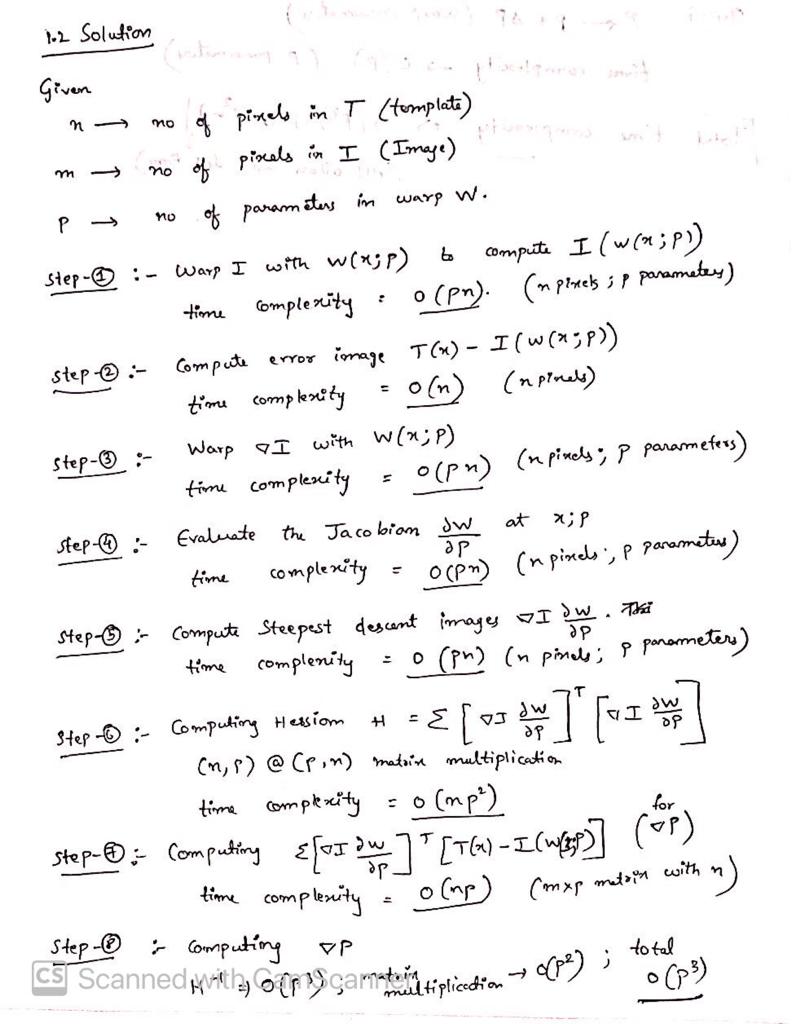 1.2 Solution
Given
n → no of pixels in T (template)
m → no of pixels in I (Image)
P → no of parameters in warp W.
Step-① :- Warp I with W(x;P) to compute I(W(x;P))
time complexity : O(Pn). (n pixels ; P parameters)
Step-② :- Compute error image T(x) - I(W(x;P))
time complexity = O(n) (n pixels)
Step-③ :- Warp ∇I with W(x;P)
time complexity = O(Pn) (n pixels; P parameters)
Step-④ :- Evaluate the Jacobian ∂W/∂P at x;P
time complexity = O(Pn) (n pixels; P parameters)
Step-⑤ :- Compute Steepest descent images ∇I ∂W/∂P .
time complexity = O(Pn) (n pixels; P parameters)
Step-⑥ :- Computing Hessian H = Σ[∇I ∂W/∂P]ᵀ[∇I ∂W/∂P]
(n,P) @ (P,n) matrix multiplication
time complexity = O(nP²)
Step-⑦ :- Computing Σ[∇I ∂W/∂P]ᵀ[T(x)-I(W(x;P))] for (∇P)
time complexity = O(nP) (nxp matrix with n)
Step-⑧ :- Computing ∇P
H⁻¹ ⇒ O(P³) ; matrix multiplication → O(P²) ; total O(P³)
CS Scanned with CamScanner